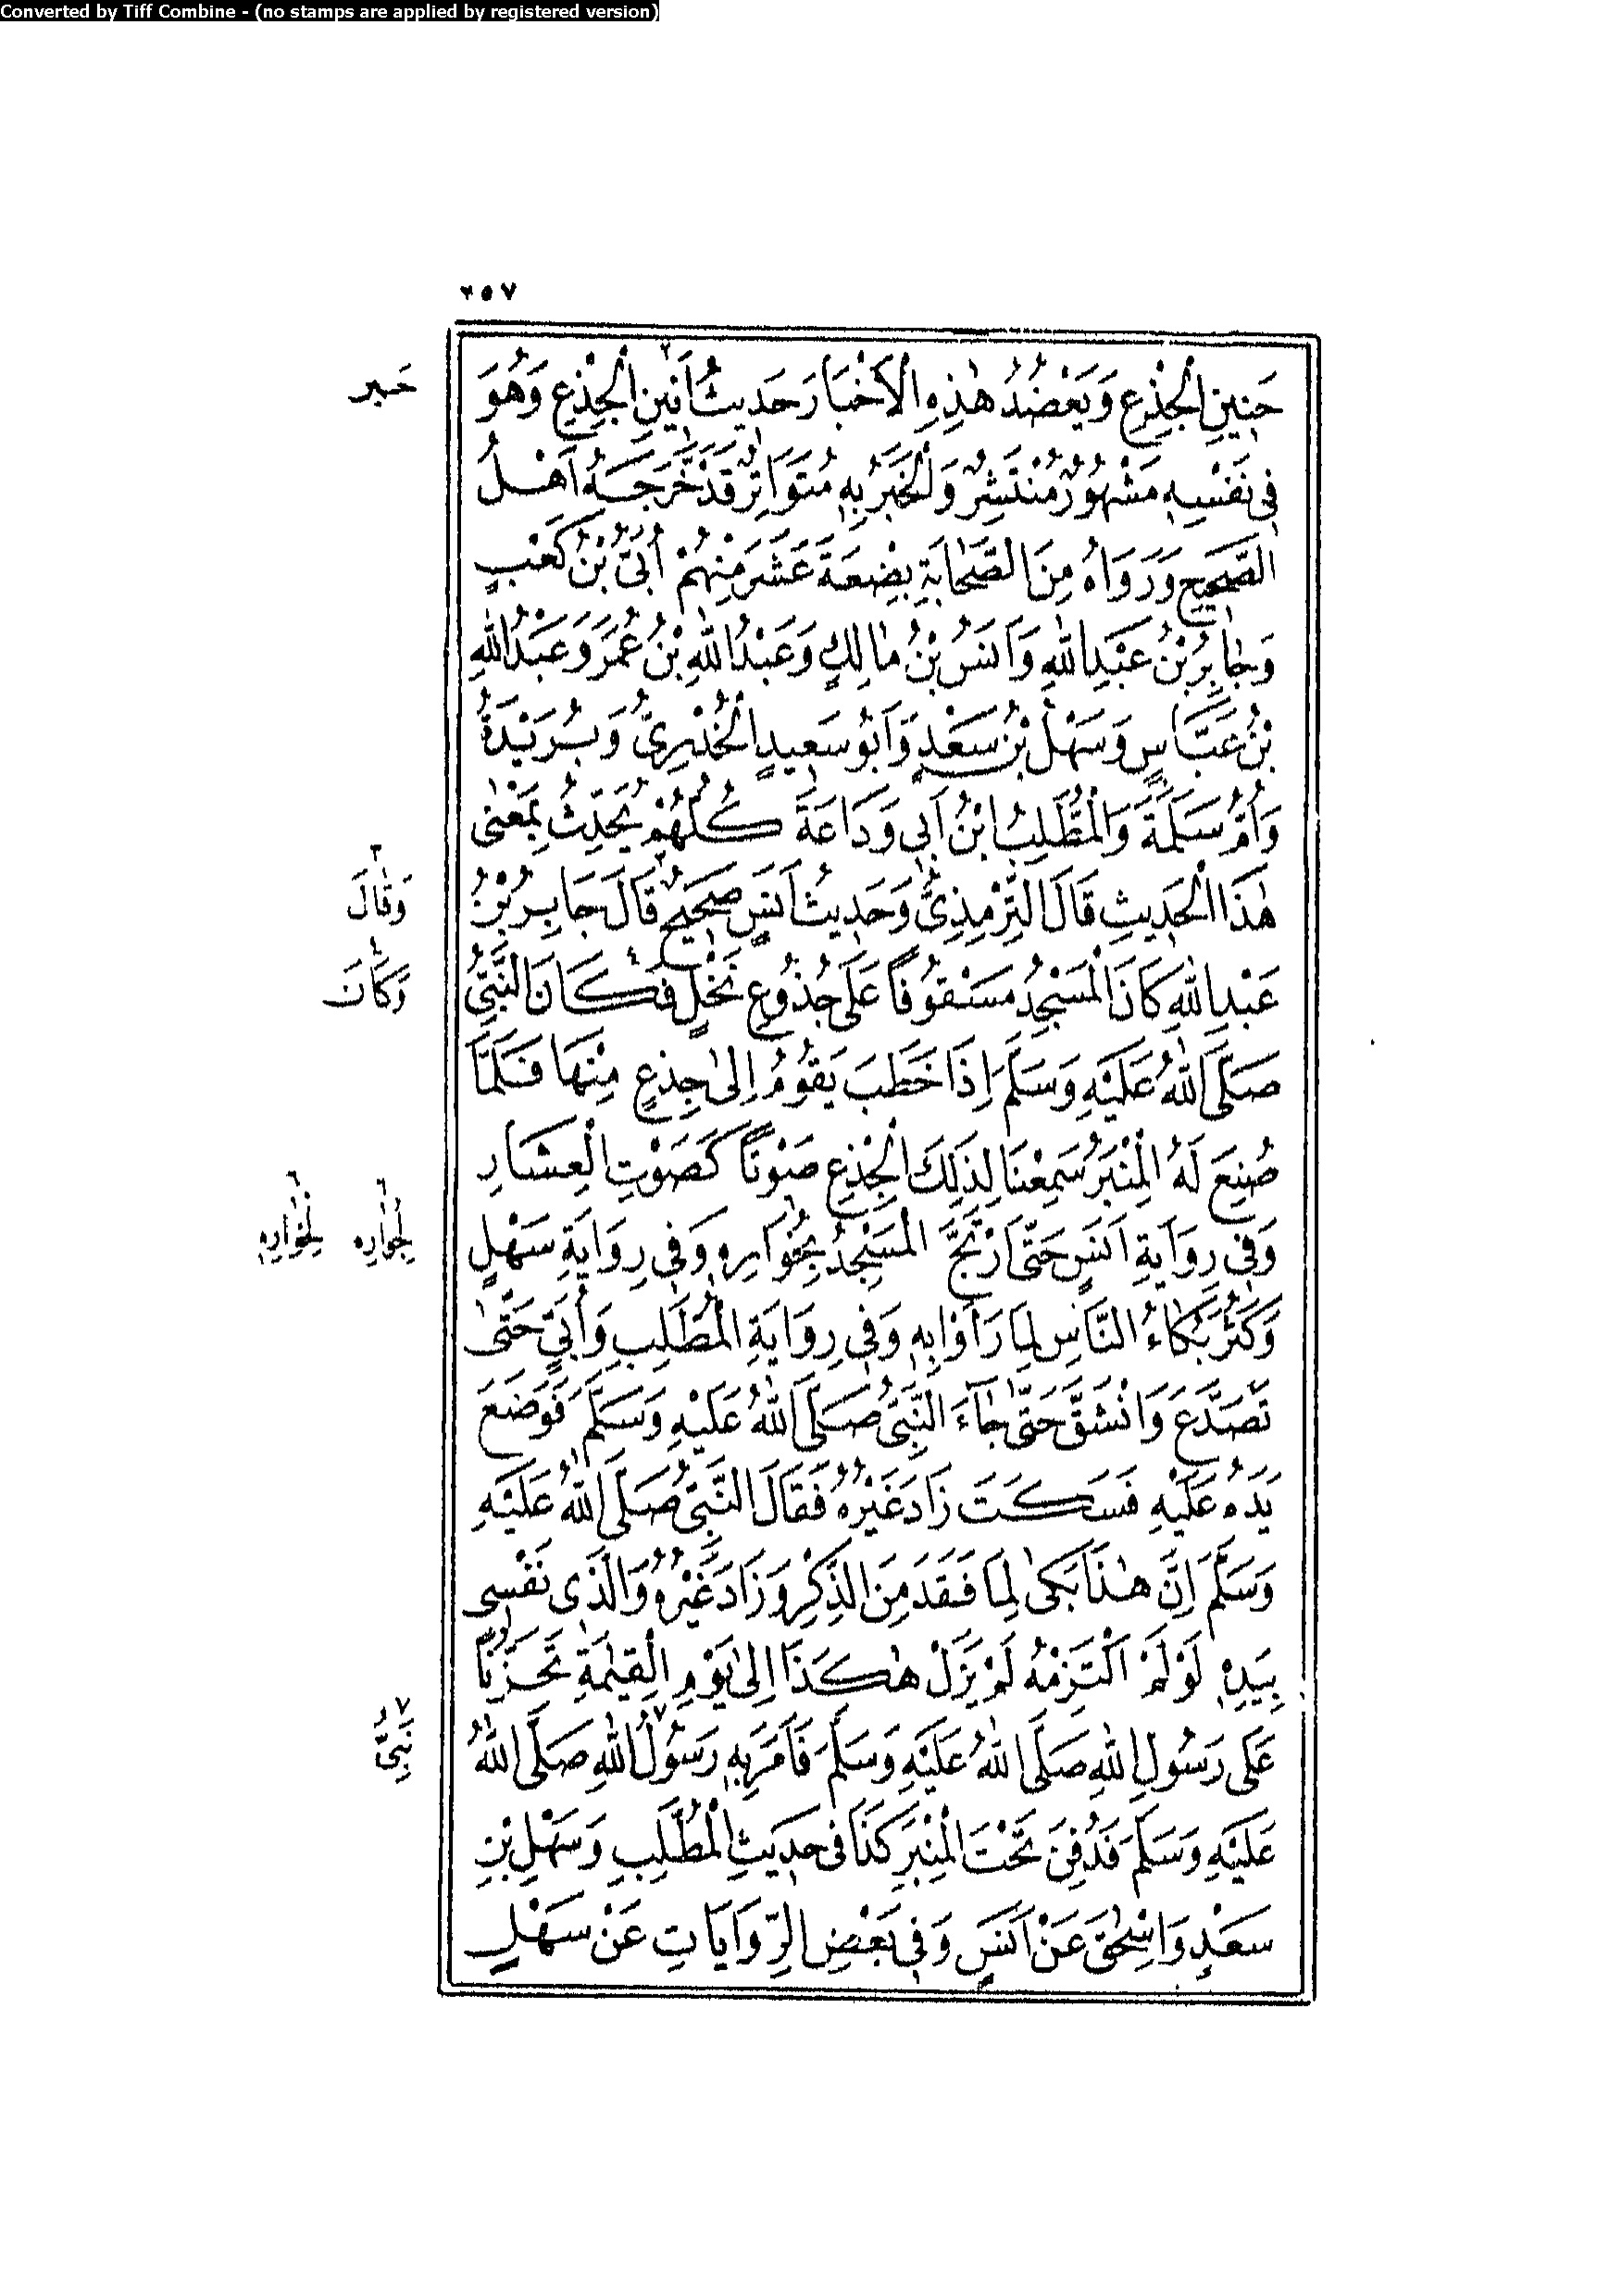 Converted by Tiff Combine - (no stamps are applied by registered version)
٢٥٧
حَنِينِ الْجِذْعِ وَيَعْضُدُ هٰذِهِ الْاَخْبَارَ حَدِيثُ اَنِينِ الْجِذْعِ وَهُوَ
فِى نَفْسِهِ مَشْهُورٌ مُنْتَشِرٌ وَالْخَبَرُ بِهِ مُتَوَاتِرٌ قَدْ خَرَّجَهُ اَهْلُ
الصَّحِيحِ وَرَوَاهُ مِنَ الصَّحَابَةِ بِضْعَةَ عَشَرَ مِنْهُمْ اُبَىُّ بْنُ كَعْبٍ
وَجَابِرُ بْنُ عَبْدِ اللهِ وَاَنَسُ بْنُ مَالِكٍ وَعَبْدُ اللهِ بْنُ عُمَرَ وَعَبْدُ اللهِ
بْنُ عَبَّاسٍ وَسَهْلُ بْنُ سَعْدٍ وَاَبُو سَعِيدٍ الْخُدْرِىُّ وَبُرَيْدَةُ
وَاُمُّ سَلَمَةَ وَالْمُطَّلِبُ ابْنُ اَبِى وَدَاعَةَ كُلُّهُمْ يُحَدِّثُ بِمَعْنٰى
هٰذَا الْحَدِيثِ قَالَ التِّرْمِذِىُّ وَحَدِيثُ اَنَسٍ صَحِيحٌ قَالَ جَابِرُ بْنُ
عَبْدِ اللهِ كَانَ الْمَسْجِدُ مَسْقُوفًا عَلَى جُذُوعِ نَخْلٍ فَكَانَ النَّبِىُّ
صَلَّى اللهُ عَلَيْهِ وَسَلَّمَ اِذَا خَطَبَ يَقُومُ اِلٰى جِذْعٍ مِنْهَا فَلَمَّا
صُنِعَ لَهُ الْمِنْبَرُ سَمِعْنَا لِذٰلِكَ الْجِذْعِ صَوْتًا كَصَوْتِ الْعِشَارِ
وَفِى رِوَايَةِ اَنَسٍ حَتَّى ارْتَجَّ الْمَسْجِدُ بِخُوَارِهِ وَفِى رِوَايَةِ سَهْلٍ
وَكَثُرَ بُكَاءُ النَّاسِ لِمَا رَاَوْا بِهِ وَفِى رِوَايَةِ الْمُطَّلِبِ وَاُبَىٍّ حَتّٰى
تَصَدَّعَ وَانْشَقَّ حَتّٰى جَآءَ النَّبِىُّ صَلَّى اللهُ عَلَيْهِ وَسَلَّمَ فَوَضَعَ
يَدَهُ عَلَيْهِ فَسَكَتَ زَادَ غَيْرُهُ فَقَالَ النَّبِىُّ صَلَّى اللهُ عَلَيْهِ
وَسَلَّمَ اِنَّ هٰذَا بَكٰى لِمَا فَقَدَ مِنَ الذِّكْرِ وَزَادَ غَيْرُهُ وَالَّذِى نَفْسِى
بِيَدِهِ لَوْ لَمْ اَلْتَزِمْهُ لَمْ يَزَلْ هٰكَذَا اِلٰى يَوْمِ الْقِيٰمَةِ تَحَزُّنًا
عَلَى رَسُولِ اللهِ صَلَّى اللهُ عَلَيْهِ وَسَلَّمَ فَاَمَرَ بِهِ رَسُولُ اللهِ صَلَّى اللهُ
عَلَيْهِ وَسَلَّمَ فَدُفِنَ تَحْتَ الْمِنْبَرِ كَذَا فِى حَدِيثِ الْمُطَّلِبِ وَسَهْلِ بْنِ
سَعْدٍ وَاِسْحٰقَ عَنْ اَنَسٍ وَفِى بَعْضِ الرِّوَايَاتِ عَنْ سَهْلٍ
وَقَالَ
وَكَانَ
لِجُوَارِهِ لِخُوَارِهِ
نَبِىُّ